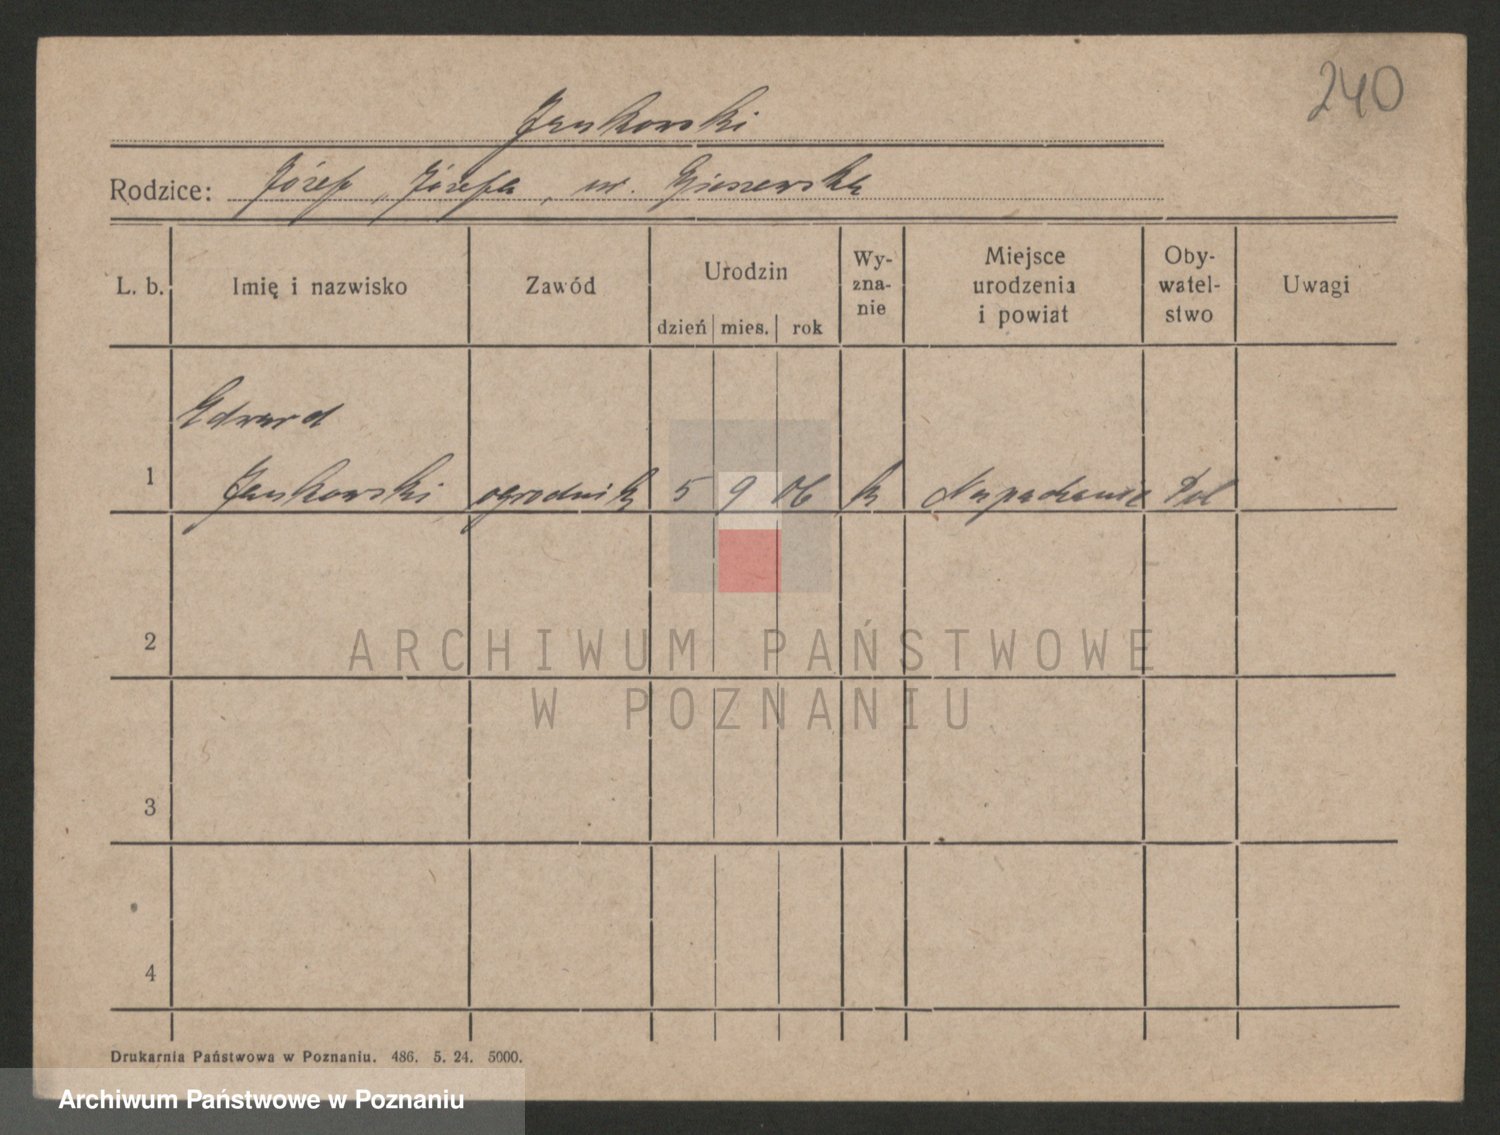 240
Jankowski
Rodzice: Józef, Józefa, ur.
L. b.
Imię i nazwisko
Zawód
Urodzin
dzień mies. rok
Wy-
zna-
nie
Miejsce
urodzenia
i powiat
Oby-
watel-
stwo
Uwagi
Edward
1 Jankowski ogrodnik 5 9 06 k Napachanie Pol
2
3
4
ARCHIWUM PAŃSTWOWE
W POZNANIU
Drukarnia Państwowa w Poznaniu. 486. 5. 24. 5000.
Archiwum Państwowe w Poznaniu